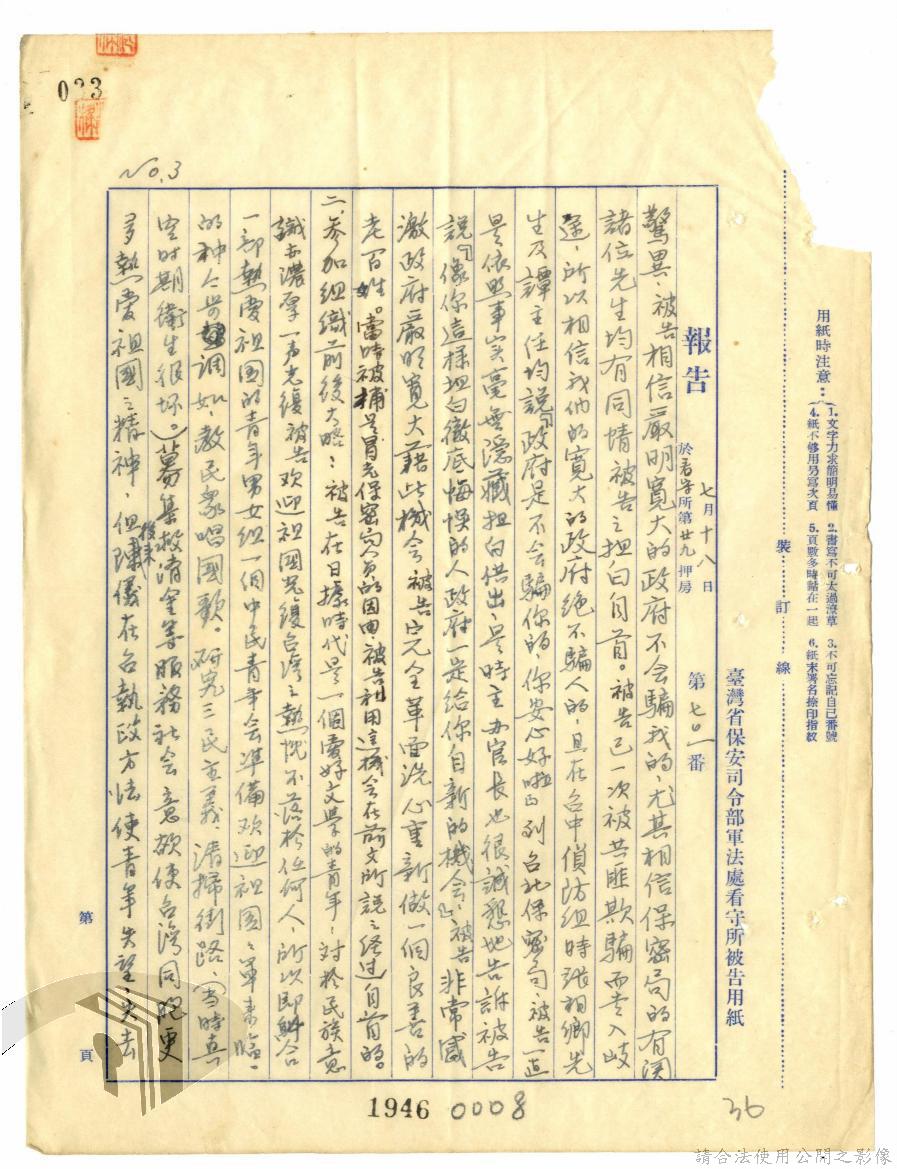 033
No.3
用紙時注意：
1.文字力求簡明易懂 2.書寫不可太過潦草 3.不可忘記自己番號
4.紙不够用另寫次頁 5.頁數多時黏在一起 6.紙末署名捺印指紋
裝 訂 線
臺灣省保安司令部軍法處看守所被告用紙
報告
七月十八日
於看守所第廿九押房
第七〇一番
驚異、被告相信嚴明寬大的政府不会騙我的，尤其相信保密局的有関
諸位先生均有同情被告之坦白自首。被告已一次被共匪欺騙而走入岐
途，所以相信我們的寬大的政府绝不騙人的，且在台中偵防组時張相卿先
生及譚主任均説「政府是不会騙你的，你安心好啦」到台北保密局被告一直
是依照事実毫無隐藏坦白供出，是時主办官長也很誠懇地告訴被告
説『像你這樣坦白徹底悔悞的人政府一定给你自新的機会』，被告非常感
激政府嚴明寬大藉此機会被告完全革面洗心重新做一個良善的
老百姓。當時被捕是冒充保密局人員的因由，被告利用這機会在前文所説之経过自首的。
二、参加组織前後大略：被告在日據時代是一個愛好文學的青年，对於民族意
識亦濃厚一到光復被告欢迎祖國光復台湾之熱忱不落於任何人，所以即糾合
一部熱愛祖国的青年男女组一個中民青年会準備欢迎祖国之軍來臨。
的種々步調如，教民衆唱國歌。研究三民主義，清掃街路、（当時真
空时期衛生很坏。）募集救濟金等服務社会意欲使台湾同胞更
多熱愛祖國之精神，但後來陳儀在台執政方法使青年失望，失去
第 頁
1946 0008
36
請合法使用公開之影像